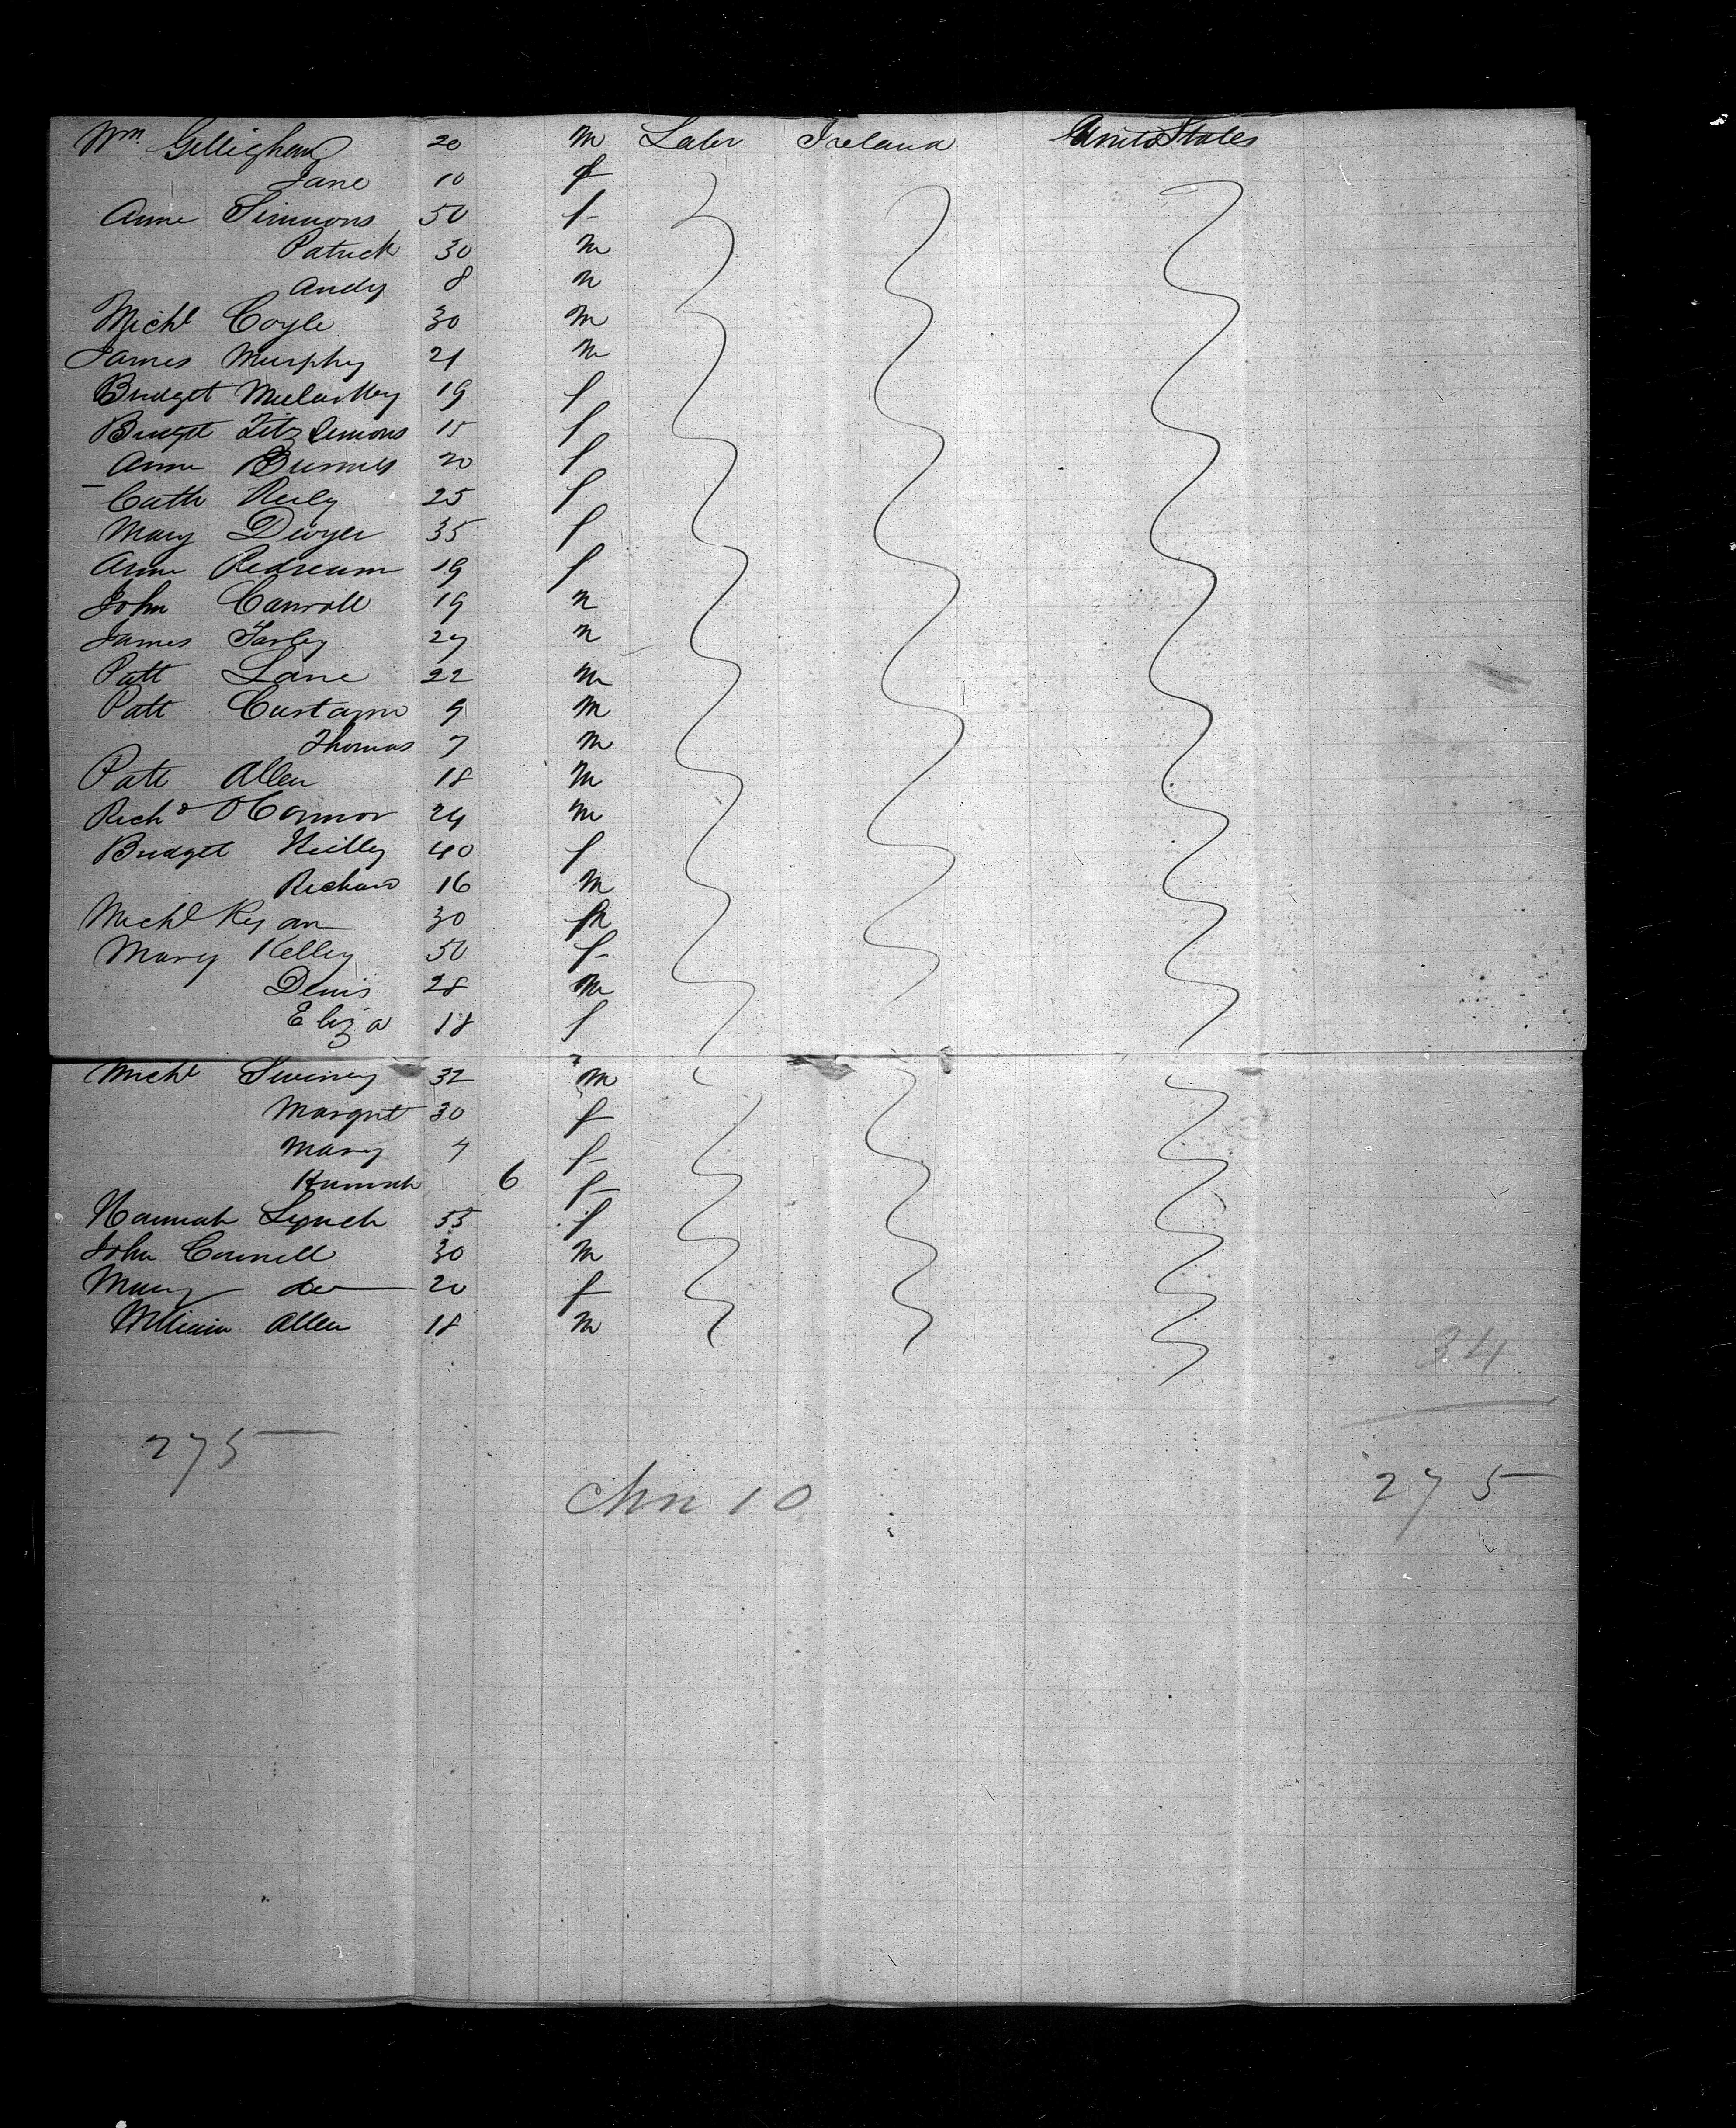 Wm Gillighan 20 m Labr Ireland United States
Jane 10 f
Anne Simmons 50 f
Patrick 30 m
Andy 8 m
Michl Coyle 30 m
James Murphy 21 m
Bridget 19 f
Bridget Fitz Simons 15 f
Anne 20 f
Cath Reily 25 f
Mary Dwyer 35 f
Anne 19 f
John Carroll 19 m
James Farley 27 m
Patt Lane 22 m
Patt 9 m
Thomas 7 m
Patt Allen 18 m
Richd O'Connor 24 m
Bridget Reilly 40 f
Richard 16 m
Michl Ryan 30 m
Mary Kelley 50 f
Denis 28 m
Eliza 18 f
Michl Swiney 32 m
Margret 30 f
Mary 4 f
Hannah 6 f
Hannah Lynch 35 f
John Connell 30 m
Mary do 20 f
William Allen 18 m
34
275
275
10